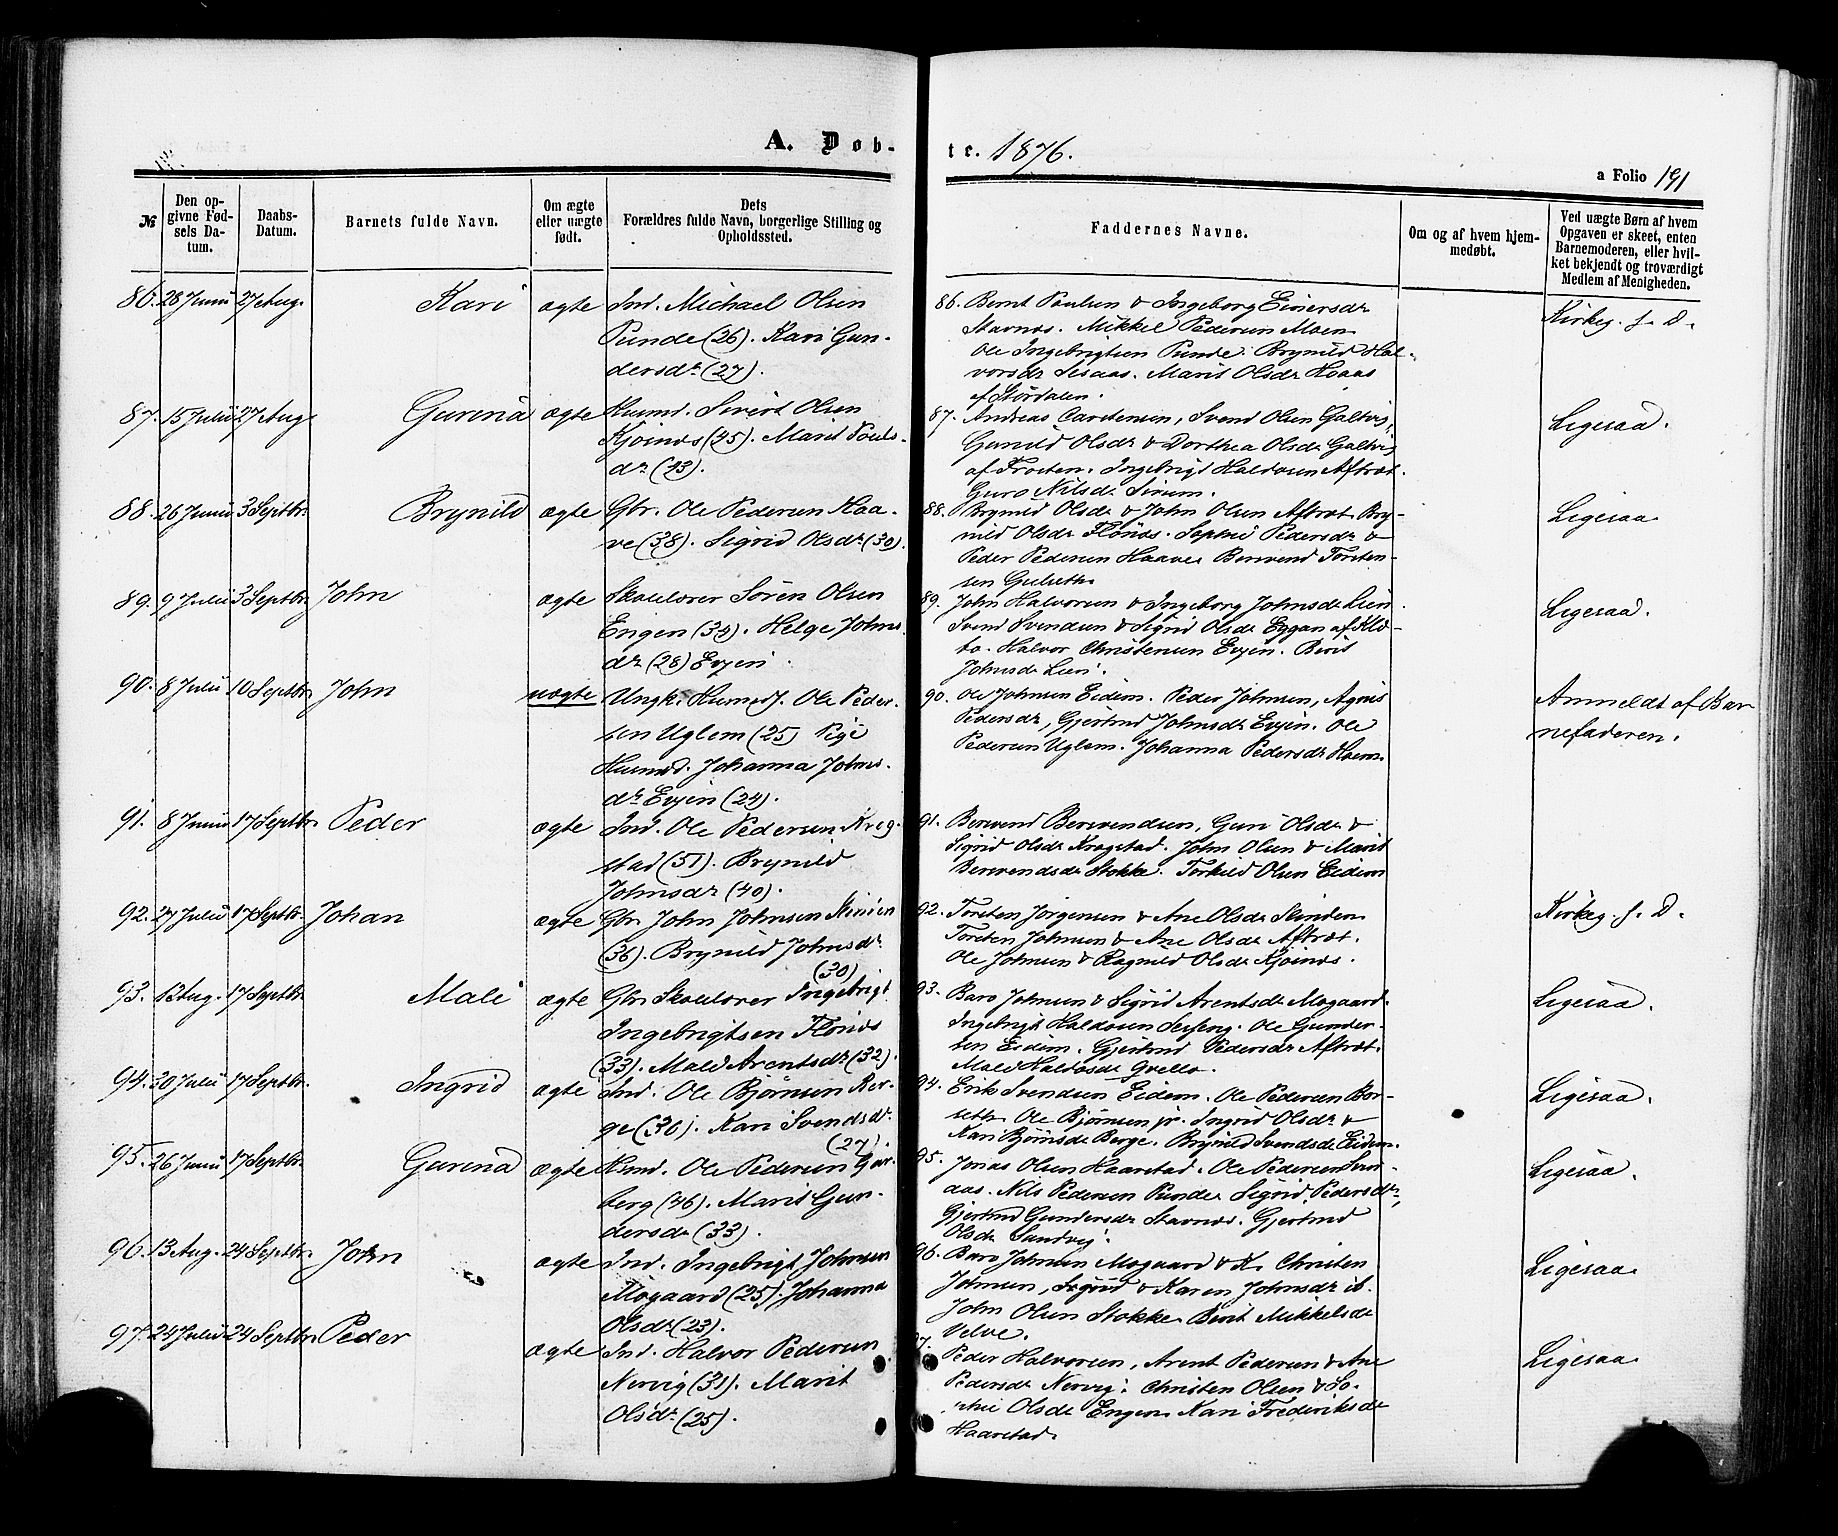 A. Døb-
te. 1876.
a Folio 191
№
Den op-
givne Fød-
sels Da-
tum.
Daabs-
Datum.
Barnets fulde Navn.
Om ægte
eller uægte
født.
Dets
Forældres fulde Navn, borgerlige Stilling og
Opholdssted.
Faddernes Navne.
Om og af hvem hjem-
medøbt.
Ved uægte Børn af hvem
Opgaven er skeet, enten
Barnemoderen, eller hvil-
ket bekjendt og troværdigt
Medlem af Menigheden.
86. 28 Juni 27 Aug. Kari ægte Ind. Michael Olsen
Punde (26). Kari Gun-
dersdr (27).
86. Bernt Paulsen & Ingeborg Einersdr
Stavnes. Mikkel Pedersen Moen
Ole Ingebrigtsen Punde. Brynild Hal-
vorsdr Sesaas. Marit Olsdr Hoaas
af Stördalen.
Kirkeg. f. D.
87. 15 Juli 27 Aug Gurena ægte Huusmd. Sivert Olsen
Kjösnes (45). Marit Pouls-
dr (43).
87. Andreas Carstensen, Svend Olsen Galtvig,
Gunild Olsdr & Dorthea Olsdr Galtvig
af Frosten. Ingebrigt Haldosen Aftret.
Guro Nilsdr Sirum.
Ligesaa.
88. 26 Juni 3 Septbr. Brynild ægte Gbr. Ole Pedersen Haa-
ve (38). Sigrid Olsdr (30).
88. Brynild Olsdr & John Olsen Aftret. Bry-
nild Olsdr Flönes. Sophie Pedersdr &
Peder Pedersen Haave. Berevend Torsten-
sen Gulseth.
Ligesaa
89. 9 Juli 3 Septbr. John ægte Skolelærer Sören Olsen
Engen (34). Helge Johns-
dr (28) Evjen.
89. John Halvorsen & Ingeborg Johnsdr Lien.
Svend Svendsen & Sigrid Olsdr Eggan af Klæ-
bo. Halvor Christensen Evjen. Berit
Johnsdr Lien.
Ligesaa.
90. 8 Juli 10 Septbr. John uægte Ungk. Huusmdf. Ole Peder-
sen Uglem (25) Pige
Huusmd. Johanna Johns-
dr Evjen (24).
90. Ole Johnsen Eidem. Peder Johnsen, Agnis
Pedersdr, Gjertrud Johnsdr Evjen. Ole
Pedersen Uglem. Johanna Pedersdr Hoem.
Anmeldt af Bar-
nefaderen.
91. 8 Juni 17 Septbr. Peder ægte Ind. Ole Pedersen Krog-
stad (51). Brynild
Johnsdr (40).
91. Berevend Berevendsen, Guri Olsdr &
Sigrid Olsdr Krogstad. John Olsen & Marit
Berevendsdr Stokke. Torkild Olsen Eidem
92. 27 Juli 17 Septbr. Johan ægte Gbr. John Johnsen Slinden
(36). Brynild Johnsdr
(30)
92. Torsten Jörgensen & Ane Olsdr Slinden
Torsten Johnsen & Ane Olsdr Aftret.
Ole Johnsen & Ragnild Olsdr Kjösnes.
Kirkeg. f. D.
93. 13 Aug. 17 Septbr. Mali ægte Gbr. Skolelærer Ingebrigt
Ingebrigtsen Flönes
(33). Mali Arentsdr (32).
93. Baro Johnsen & Sigrid Arentsdr Mogaard.
Ingebrigt Haldosen Setseng. Ole Gunder-
sen Eidem. Gjertrud Pedersdr Aftret.
Mali Haldosdr Grelle.
Ligesaa.
94. 30 Juli 17 Septbr. Ingrid ægte Ind. Ole Bjørnsen Ber-
ge (30). Kari Svendsdr.
(27).
94. Erik Svendsen Eidem. Ole Pedersen Bor-
seth. Ole Bjørnsen jr. Ingrid Olsdr &
Kari Bjørnsdr Berge. Brynild Svendsdr Eidem.
Ligesaa.
95. 26 Juni 17 Septbr. Gurena ægte Hsmd. Ole Pedersen Gar-
berg (46). Marit Gun-
dersdr (33).
95. Jonas Olsen Haarstad. Ole Pedersen
aas. Nils Pedersen Punde. Sigrid Pedersdr,
Gjertrud Gundersdr Stavnes. Gjertrud
Olsdr Sandvig.
Ligesaa.
96. 13 Aug. 24 Septbr. John ægte Ind. Ingebrigt Johnsen
Mogaard (25). Johanna
Olsdr (23).
96. Baro Johnsen Mogaard & K. Christen
Johnsen, Sigrid & Karen Johnsdr ib.
John Olsen Stokke. Berit Mikkelsdr
Velve.
Ligesaa
97. 24 Juli 24 Septbr. Peder ægte Ind. Halvor Pedersen
Nervig (31). Marit
Olsdr (25).
97. Peder Halvorsen, Arent Pedersen & Ane
Pedersdr Nervig. Christen Olsen & So-
phie Olsdr Engen. Kari Frederiksdr
Haarstad.
Ligesaa